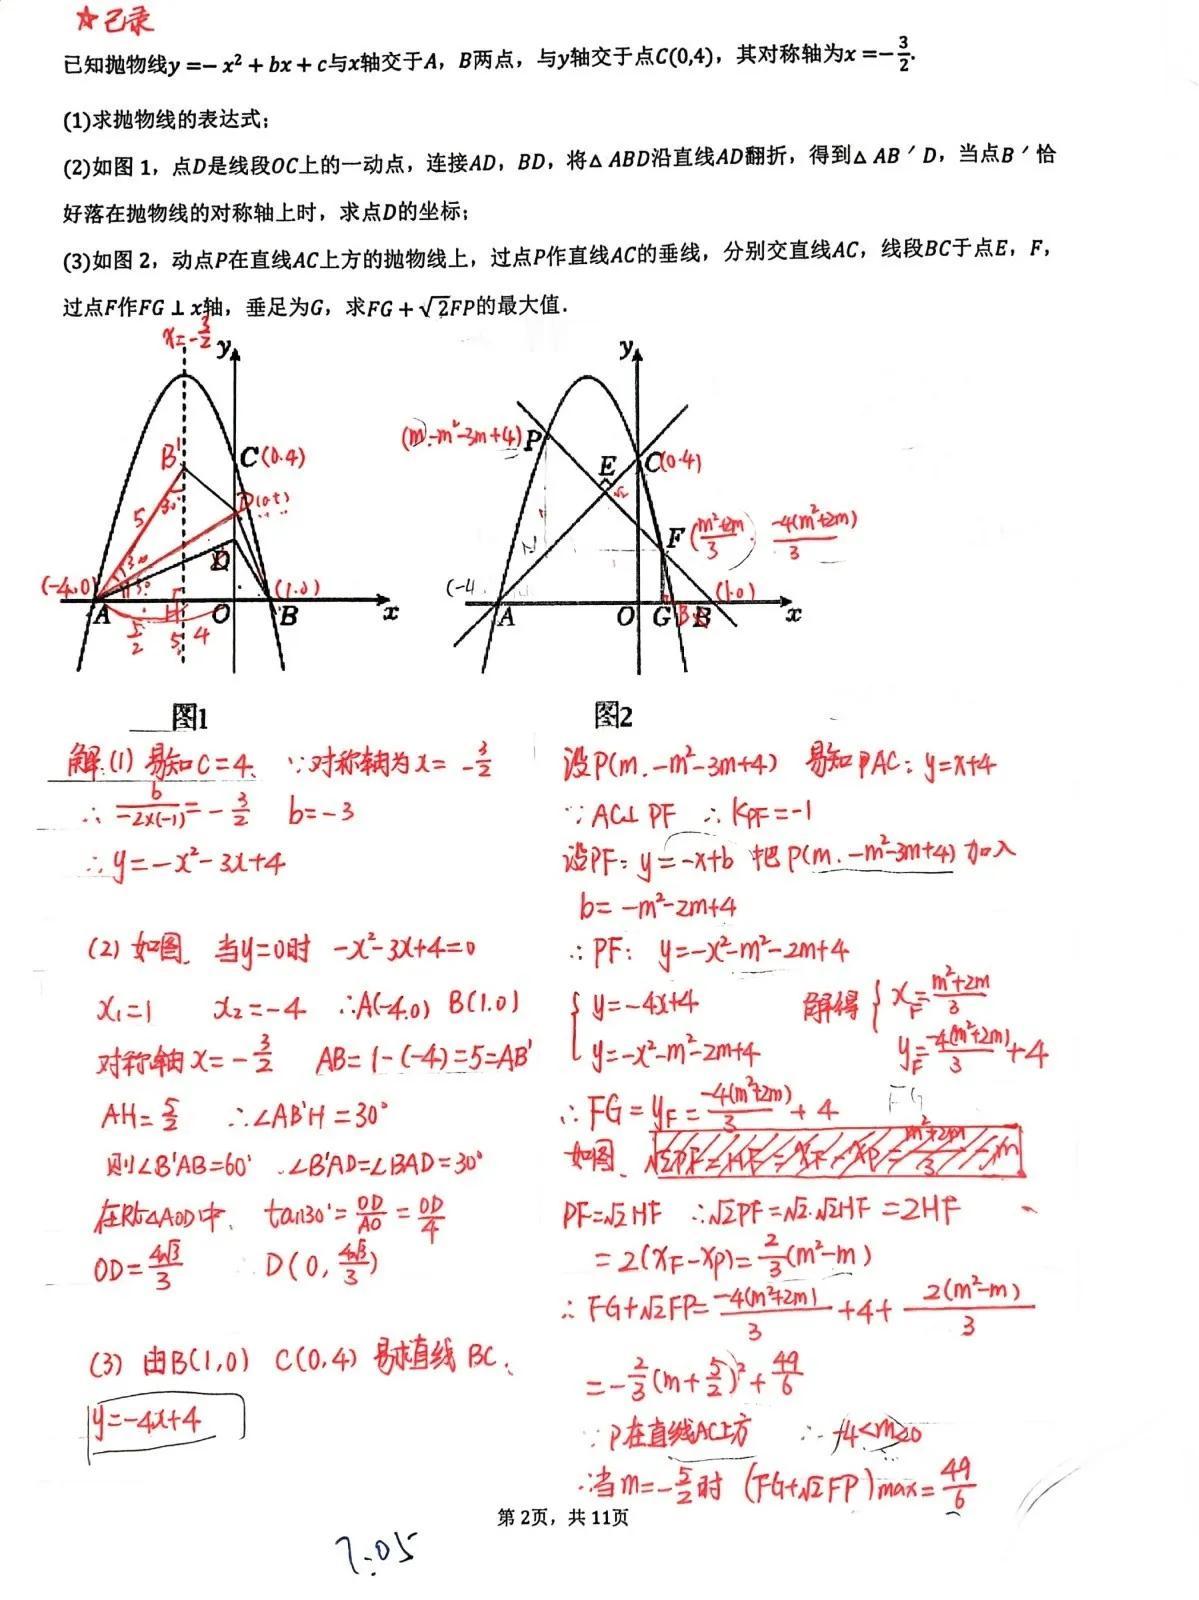 ☆已录
已知抛物线y=-x²+bx+c与x轴交于A，B两点，与y轴交于点C(0,4)，其对称轴为x=-3/2.
(1)求抛物线的表达式；
(2)如图1，点D是线段OC上的一动点，连接AD，BD，将△ABD沿直线AD翻折，得到△AB′D，当点B′恰
好落在抛物线的对称轴上时，求点D的坐标；
(3)如图2，动点P在直线AC上方的抛物线上，过点P作直线AC的垂线，分别交直线AC，线段BC于点E，F，
过点F作FG⊥x轴，垂足为G，求FG+√2FP的最大值.
x=-3/2
y
B′
C(0.4)
5
30°
D(0.t)
30
D
(-4.0)
(1.0)
A
H
O
B
x
5/2
5
4
图1
y
(m.-m²-3m+4)
P
E
C(0.4)
√2
F(m²+2m/3 . -4(m²+2m)/3)
(-4.
(1.0)
A
O
G
B
B
x
图2
解.(1)易知C=4. ∵对称轴为x=-3/2
∴b/-2×(-1)=-3/2 b=-3
∴y=-x²-3x+4
(2)如图. 当y=0时 -x²-3x+4=0
x₁=1 x₂=-4 ∴A(-4.0) B(1.0)
对称轴x=-3/2 AB=1-(-4)=5=AB′
AH=5/2 ∴∠AB′H=30°
则∠B′AB=60° ∴∠B′AD=∠BAD=30°
在Rt△AOD中. tan30°=OD/AO=OD/4
OD=4√3/3 D(0,4√3/3)
(3)由B(1,0) C(0,4)易求直线BC.
y=-4x+4
设P(m.-m²-3m+4) 易知PAC:y=x+4
∵AC⊥PF ∴K_PF=-1
设PF:y=-x+b 把P(m.-m²-3m+4)加入
b=-m²-2m+4
∴PF: y=-x²-m²-2m+4
{y=-4x+4 解得{x_F=m²+2m/3
y=-x²-m²-2m+4 y_F=-4(m²+2m)/3+4
∴FG=y_F=-4(m²+2m)/3+4 FG
如图. √2PF=HF=x_F-x_P=m²+2m/3-m
PF=√2HF ∴√2PF=√2.√2HF=2HF
=2(x_F-x_P)=2/3(m²-m)
∴FG+√2FP=-4(m²+2m)/3+4+2(m²-m)/3
=-2/3(m+5/2)²+49/6
∵P在直线AC上方 ∴-4<m<0
∴当m=-5/2时 (FG+√2FP)max=49/6
第2页，共11页
7.05